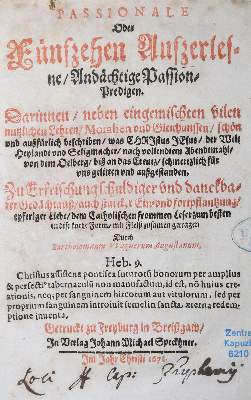 PASSIONALE
Oder
Fünfzehen Außerles-
ne/ Andächtige Passion-
Predigen.
Darinnen/ neben eingemischten vilen
nutzlichen Lehren/ Moralien und Gleichnussen/ schön
und außführlich beschriben/ was CHRIstus JEsus/ der Welt
Heylandt und Seligmacher/ nach vollendtem Abendtmahl/
von dem Oelberg/ biß an das Creutz/ schmertzlich für
uns gelitten und außgestanden.
Zu Erfrischung schuldiger und danckba-
rer Gedächtnuß/ auch
eyferiger Liebe/ dem Catholischen frommen Leser zum besten
in dise kurtze Form/ mit Fleiß zusamen getragen
Durch
Bartholomaeum Wagnerum Augustanum,
Heb. 9.
Christus assistens pontifex futurorū bonorum per amplius
& perfectiū tabernaculū non manufactum, id est, nō huius cre-
ationis, neq; per sanguinem hircorum aut vitulorum, sed per
proprium sanguinem introivit semel in sancta, æterna redem-
ptione inventa.
Getruckt zu Freyburg in Breißgaw/
In Verlag Johann Michael Speckhner.
Im Jahr Christi
Loci Cap:
Zentra
Kapuzi
6210